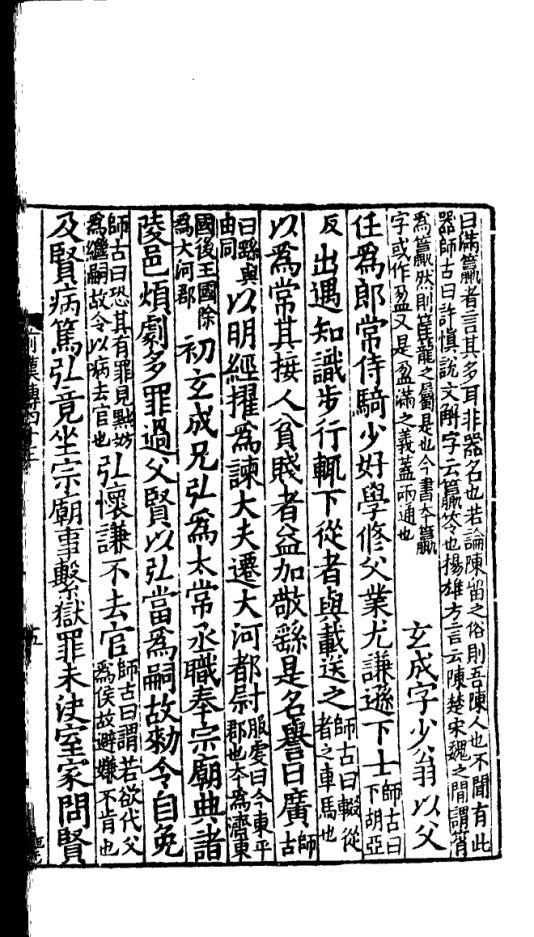 曰滿籯者言其多耳非器名也若論陳留之俗則吾陳人也不聞有此
器師古曰許慎說文解字云籯笭也揚雄方言云陳楚宋魏之間謂筲
爲籯然則筐籠之屬是也今書本籯
字或作盈又是盈滿之義蓋兩通也
玄成字少翁以父
任爲郎常侍騎少好學修父業尤謙遜下士師古曰下胡亞
反出遇知識步行輒下從者與載送之師古曰輟從者之車馬也
以爲常其接人貧賤者益加敬繇是名譽日廣師古
曰繇與由同以明經擢爲諫大夫遷大河都尉服虔曰今東平郡也本爲濟東
國後王國除爲大河郡初玄成兄弘爲太常丞職奉宗廟典諸
陵邑煩劇多罪過父賢以弘當爲嗣故勑令自免
師古曰恐其有罪見黜妨爲繼嗣故令以病去官也弘懷謙不去官師古曰謂若欲代父爲侯故避嫌不肯也
及賢病篤弘竟坐宗廟事繫獄罪未決室家問賢
前漢傳四十三
五